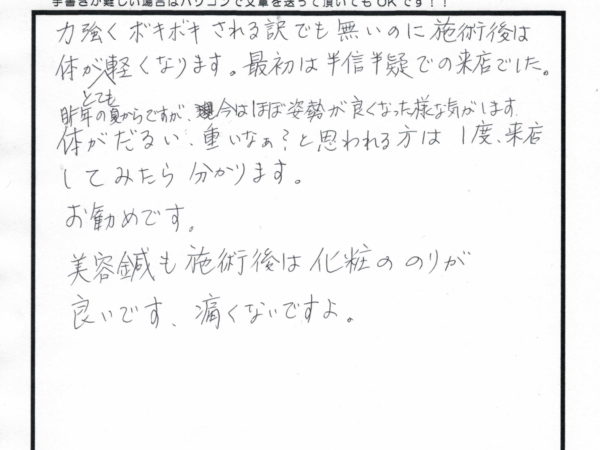 手書きが難しい場合はパソコンで文章を送って頂いてもOKです！！
力強くボキボキされる訳でも無いのに施術後は
体がとても軽くなります。最初は半信半疑での来店でした。
昨年の夏からですが、今はほぼ姿勢が良くなった様な気がします
体がだるい、重いなぁ？と思われる方は1度、来店
してみたら分かります。
お勧めです。
美容鍼も施術後は化粧ののりが
良いです、痛くないですよ。